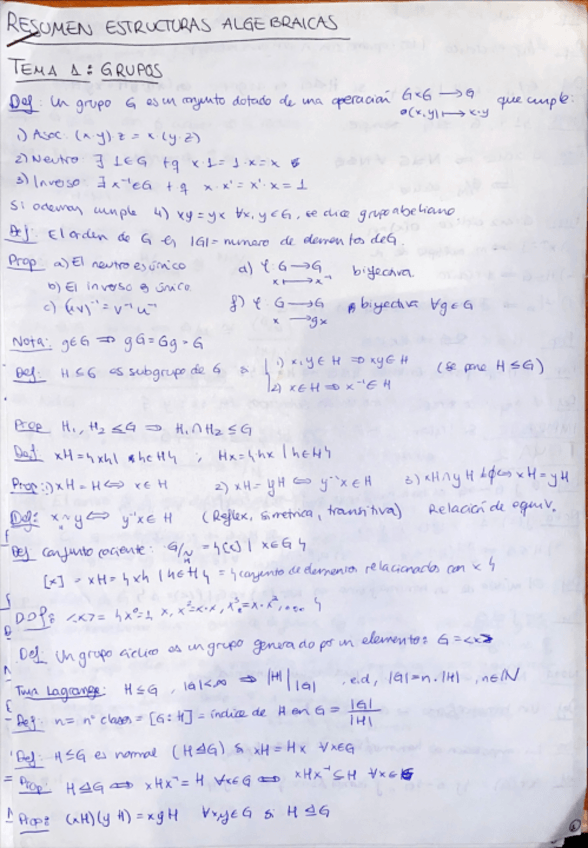 RESUMEN ESTRUCTURAS ALGEBRAICAS
TEMA 1: GRUPOS
Def: Un grupo G es un conjunto dotado de una operación G×G → G que cumple:
(x,y) ↦ x·y
1) Asoc. (x·y)·z = x·(y·z)
2) Neutro ∃ 1∈G tq x·1 = 1·x = x
3) Inverso ∃ x⁻¹∈G tq x·x' = x'·x = 1
Si además cumple 4) xy = yx ∀x,y∈G, se dice grupo abeliano.
Def: El orden de G es |G| = numero de elementos de G.
Prop a) El neutro es único d) φ: G → G biyectiva.
x ↦ x⁻¹
b) El inverso es único.
c) (uv)⁻¹ = v⁻¹u⁻¹ f) φ: G → G biyectiva ∀g∈G
x → gx
Nota: g∈G ⇒ gG = Gg = G
Def: H ≤ G es subgrupo de G si 1) x,y ∈ H ⇒ xy ∈ H (se pone H ≤ G)
2) x∈H ⇒ x⁻¹∈H
Prop H₁, H₂ ≤ G ⇒ H₁∩H₂ ≤ G
Def xH = {xh | h∈H} ; Hx = {hx | h∈H}
Prop: 1) xH = H ⇔ x∈H 2) xH = yH ⇔ y⁻¹x∈H 3) xH∩yH ≠ ϕ ⇔ xH = yH
Def: x ~ y ⇔ y⁻¹x ∈ H (Reflex, Simetrica, transitiva) Relación de equiv.
Def conjunto cociente: G/~ = {[x] | x∈G}
[x] = xH = {xh | h∈H} = {conjunto de elementos relacionados con x}
DEF: <x> = {x⁰=1, x, x²=x·x, x³=x·x·x, ...}
Def Un grupo cíclico es un grupo generado por un elemento: G = <x>
Tma Lagrange: H≤G, |G|<∞ ⇒ |H| | |G| , e.d, |G| = n·|H| , n∈ℕ
Def: n = nº clases = [G:H] = índice de H en G = |G| / |H|
Def: H≤G es normal (H⊴G) si xH = Hx ∀x∈G
Prop: H⊴G ⇔ xHx⁻¹ = H ∀x∈G ⇔ xHx⁻¹ ⊆ H ∀x∈G
Prop: (xH)(yH) = xyH ∀x,y∈G si H⊴G